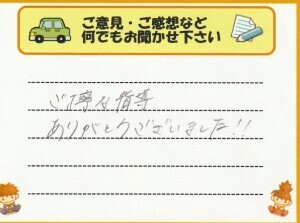 ご意見・ご感想など
何でもお聞かせ下さい
ご丁寧な指導
ありがとうございました!!